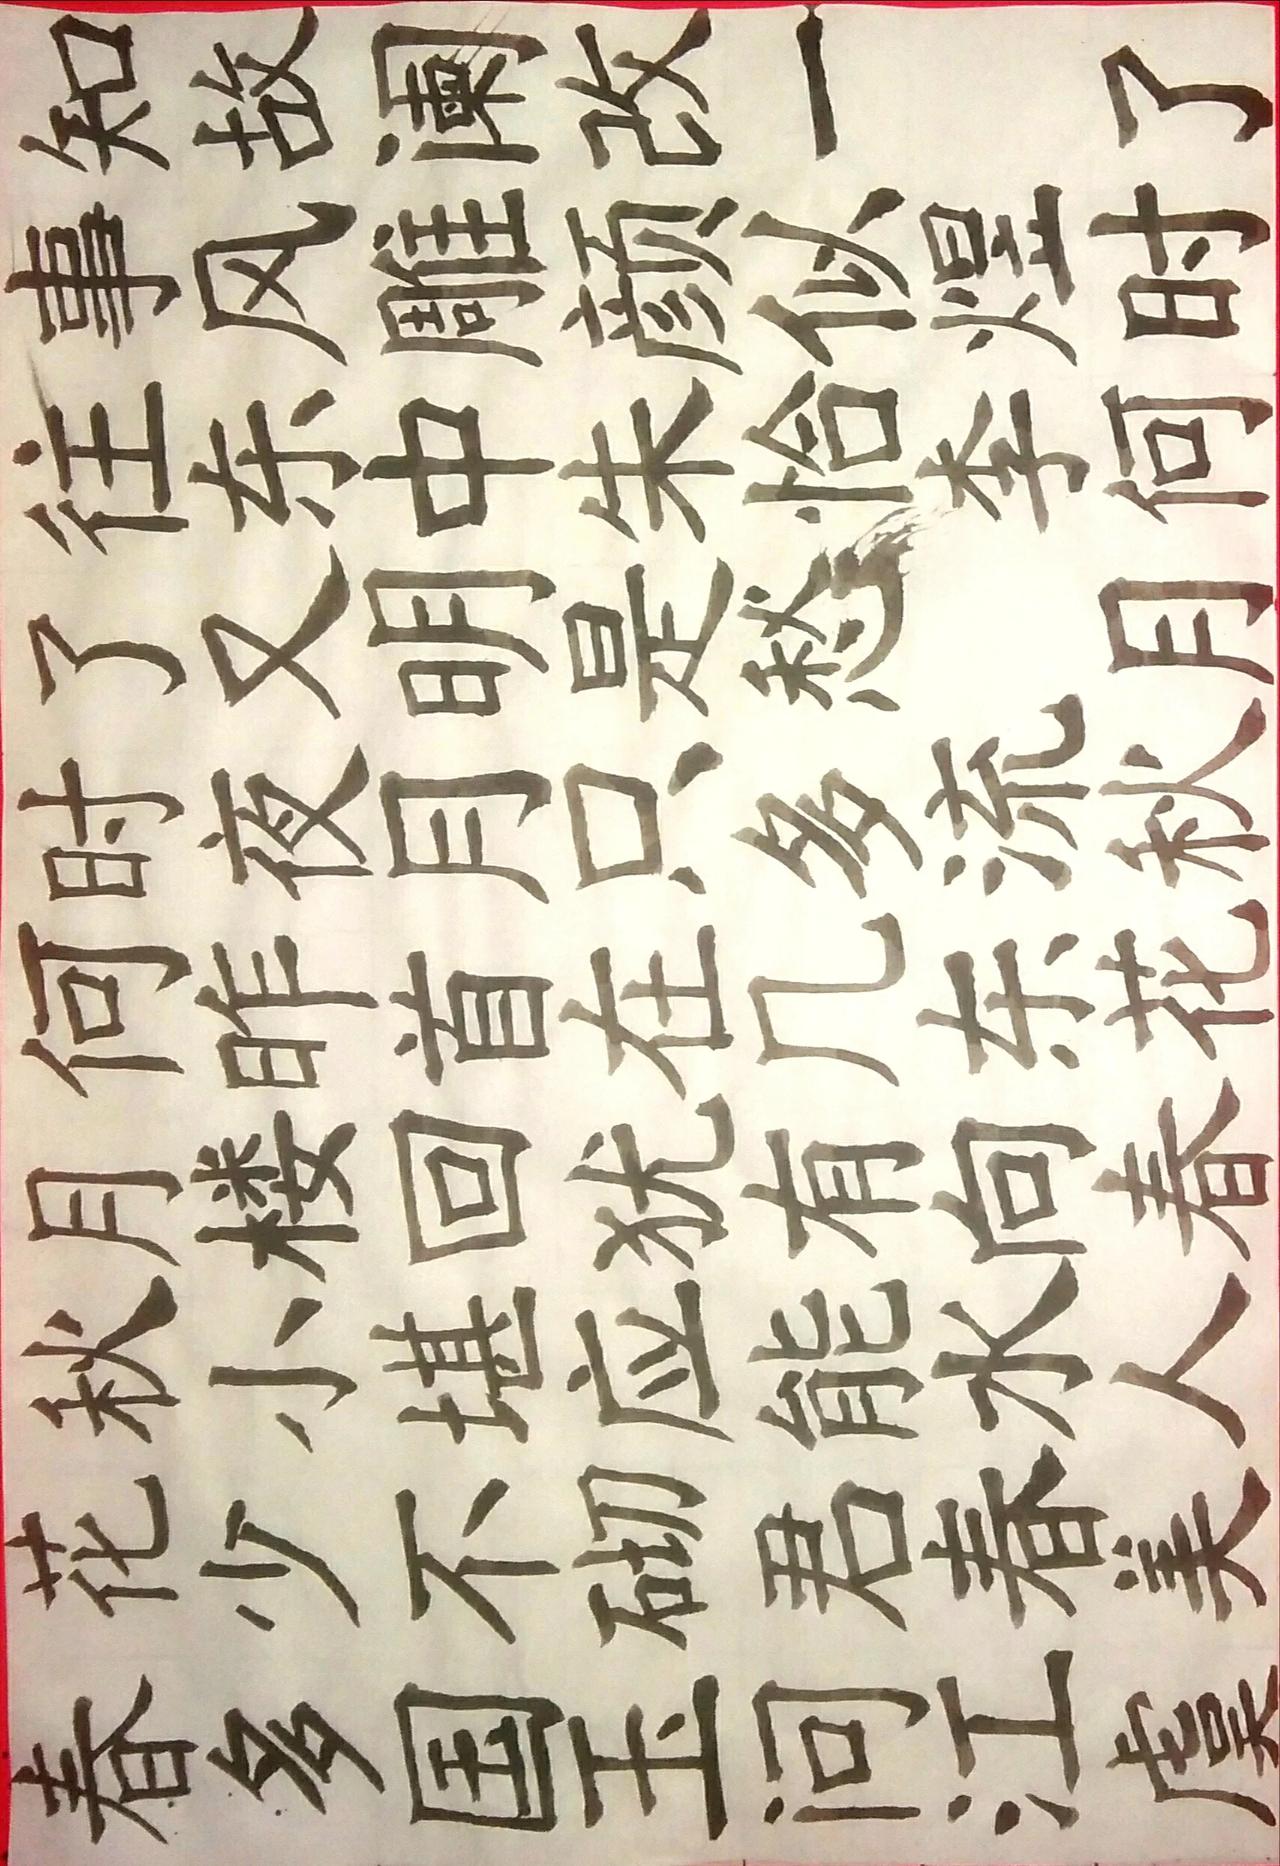 春花秋月何时了往事知
多少小楼昨夜又东风故
国不堪回首月明中雕阑
玉砌应犹在只是朱颜改
问君能有几多愁恰似一
江春水向东流 李煜
虞美人春花秋月何时了